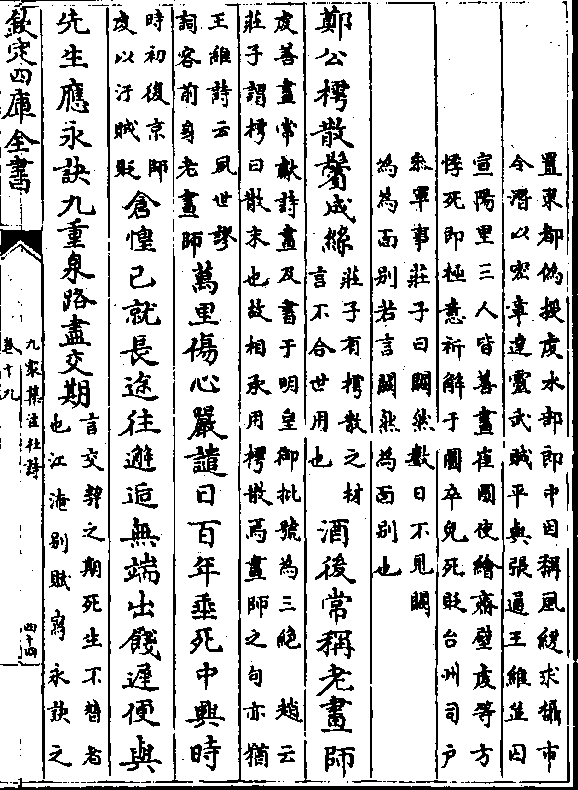 置東都偽授䖍水部郎中因稱風緩求攝市
令潛以密章達靈武賊平與張通王維並囚
宣陽里三人皆善畫崔圓使繪齋壁䖍等方
悸死即極意祈解于圓卒免死貶台州司户
叅軍事莊子曰闕然數日不見闕
為為面别若言闕然為面别也
鄭公樗散鬢成絲
莊子有樗散之材
言不合世用也
酒後常稱老畫師
䖍善畫常獻詩畫及書于明皇御批號為三絶 趙云
莊子謂樗曰散木也故相承用樗散焉畫師之句亦猶
王維詩云夙世謬
詞客前身老畫師
萬里傷心嚴譴日百年垂死中興時
時初復京師
䖍以汙賊貶
倉惶已就長途往邂逅無端出餞遲便與
先生應永訣九重泉路盡交期
言交契之期死生不替者
也江淹别賦寫永訣之
欽定四庫全書
九家集注杜詩
卷十九
四十四